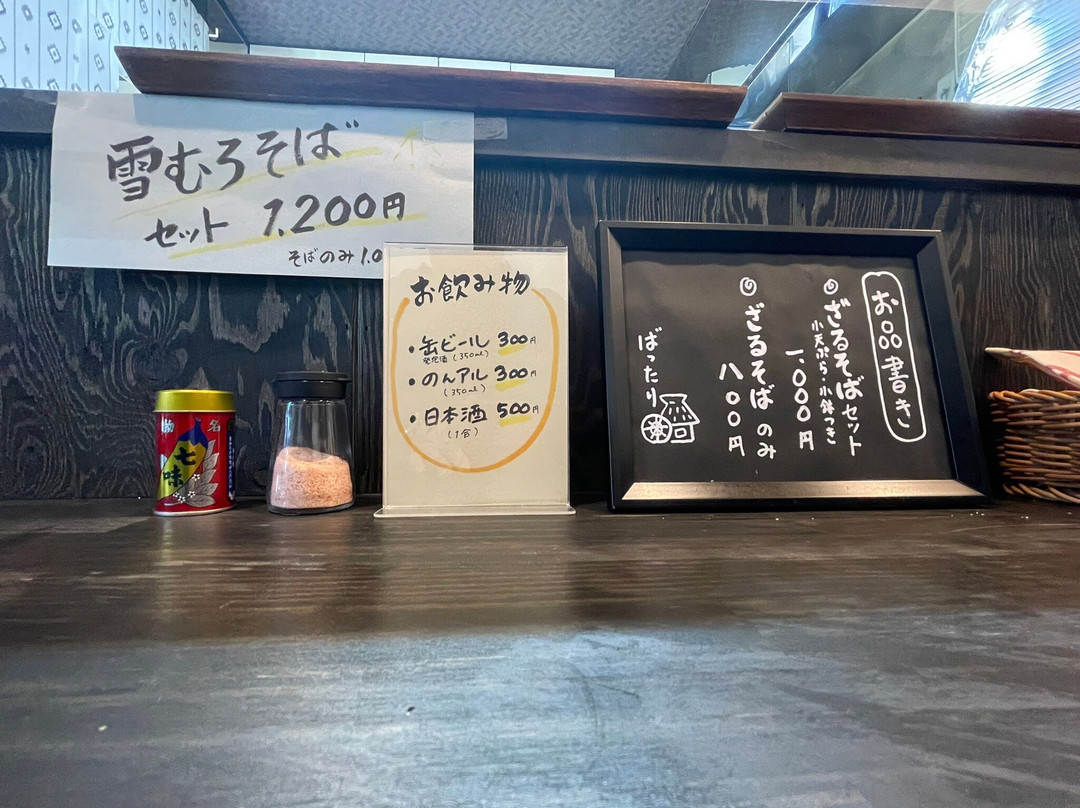 雪むろそば
セット 1,200円
そばのみ 1.0
お飲み物
・缶ビール 300円
発泡酒(350ml)
・のんアル 300円
(350ml)
・日本酒 500円
(1合)
お品書き
ざるそばセット
小天ぷら・小鉢つき
一、〇〇〇円
ざるそばのみ
八〇〇円
ばったり
七味